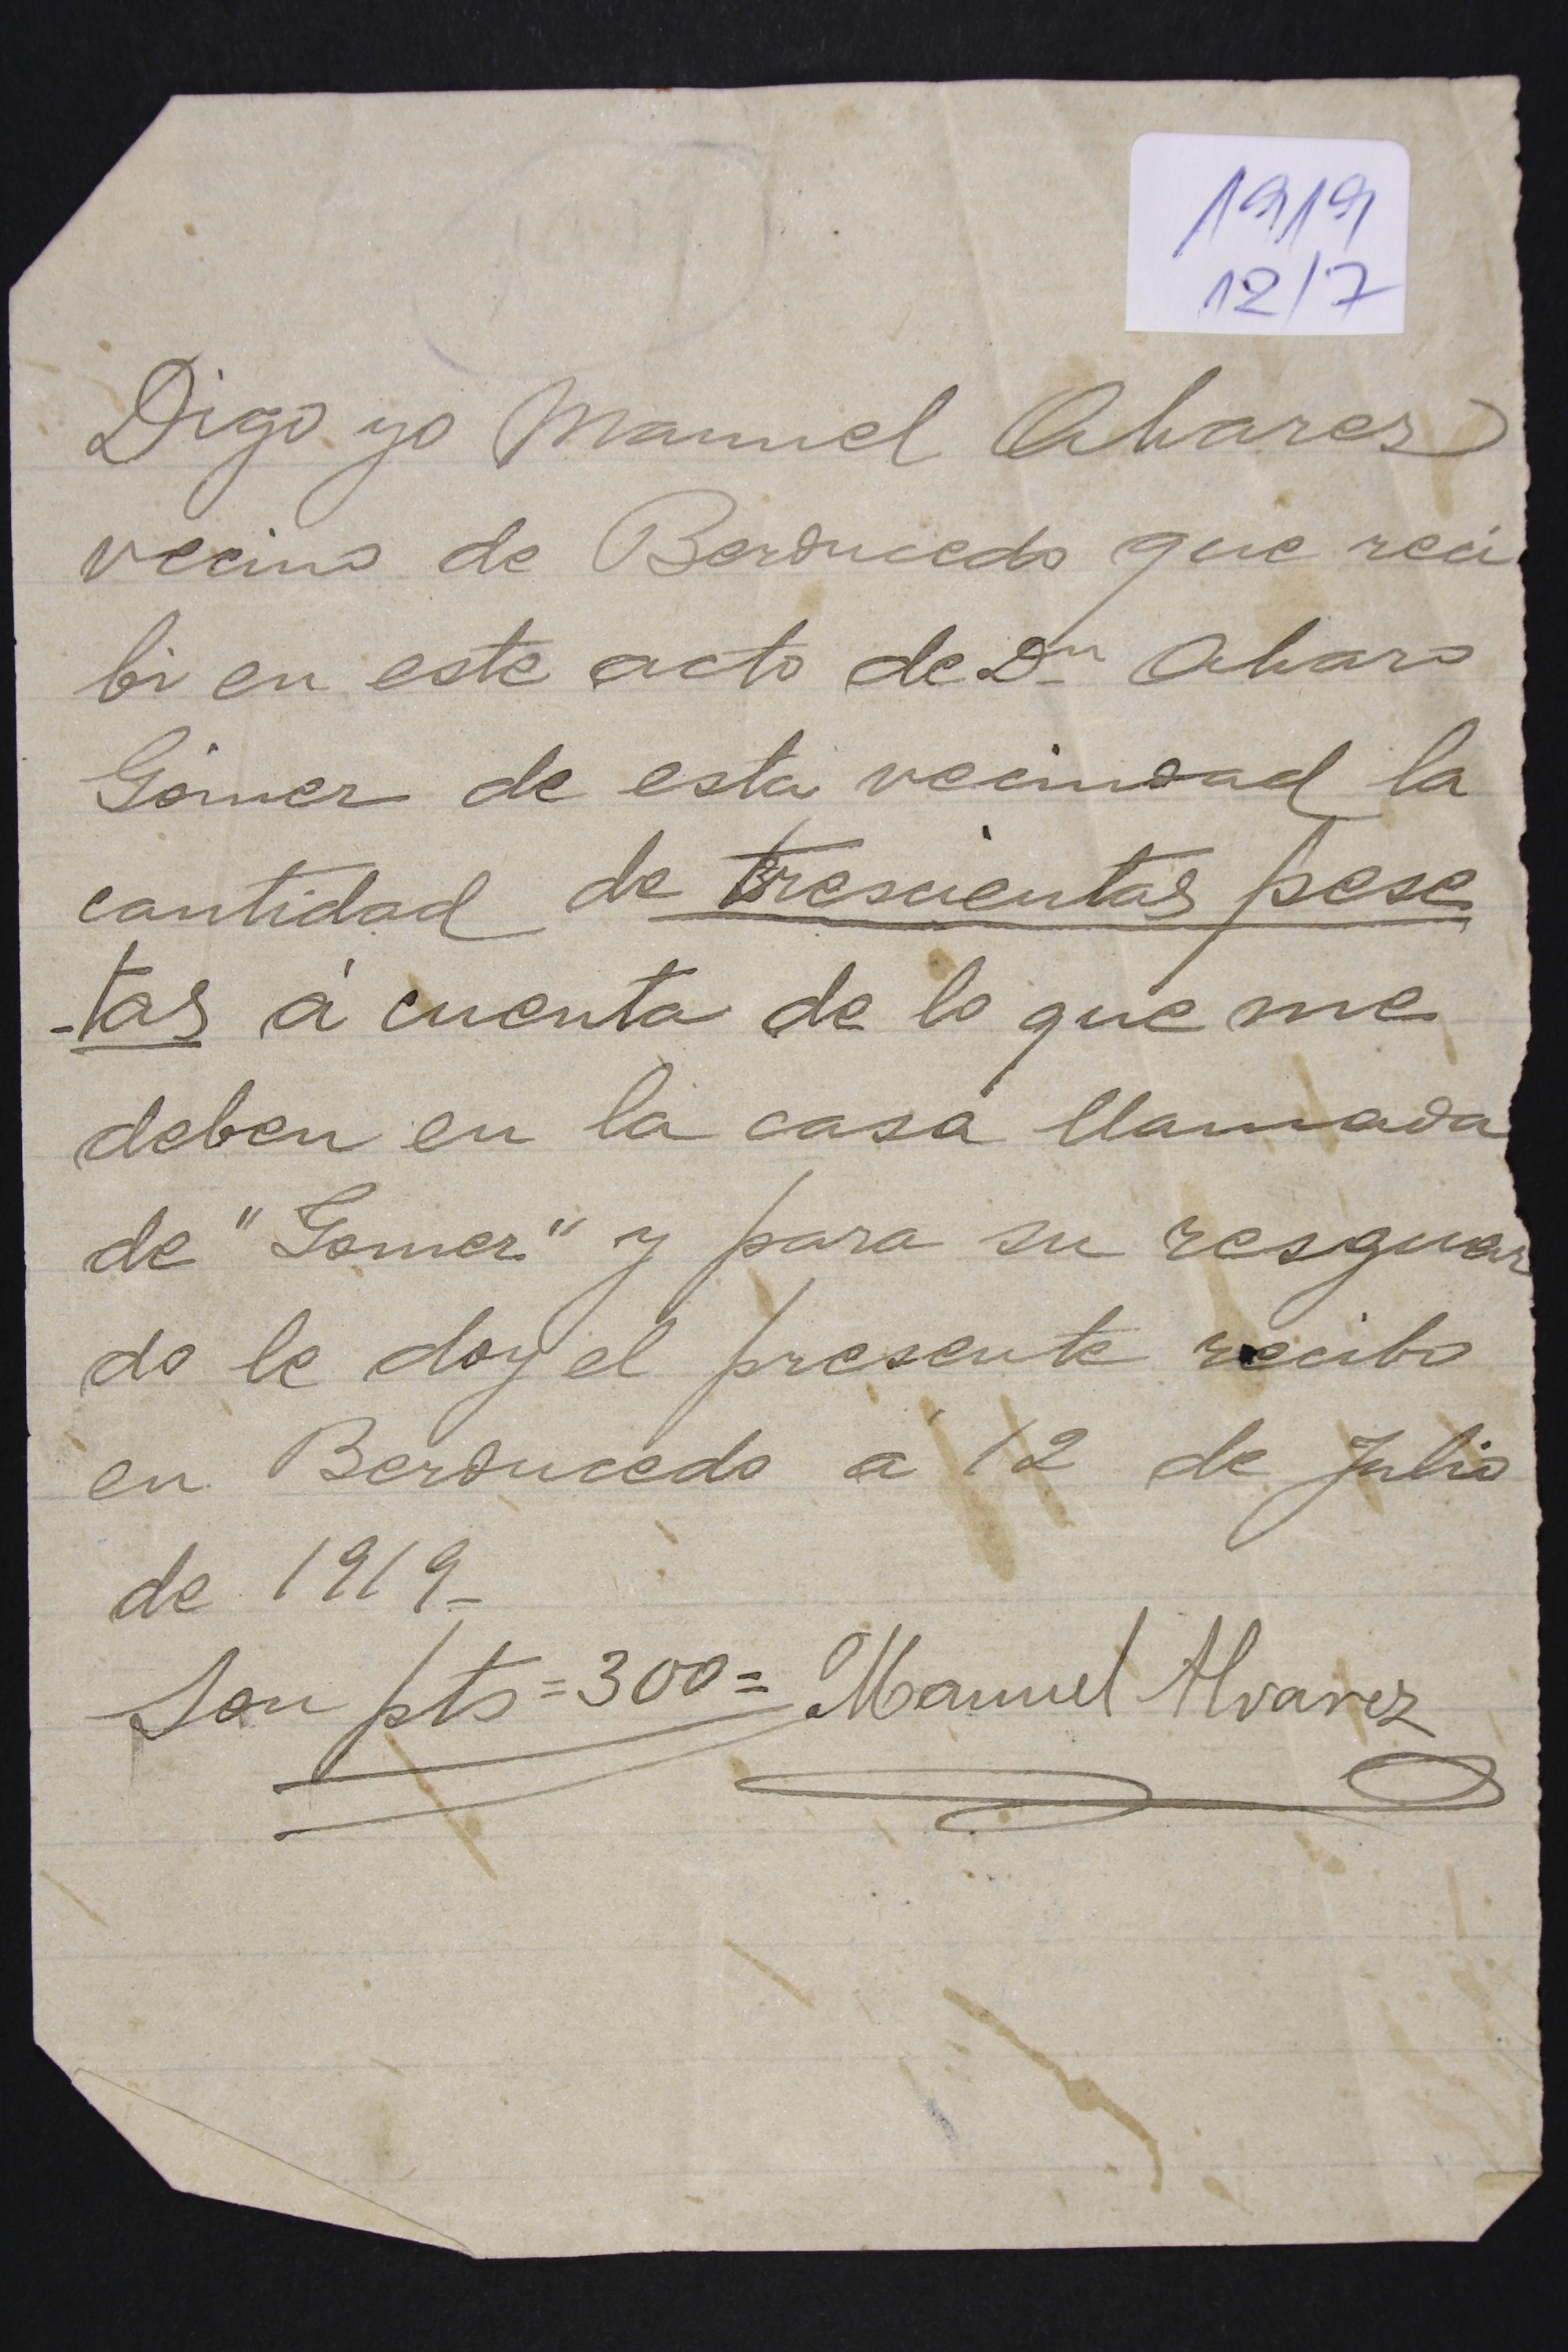 1919
12/7
Digo yo Manuel Alvarez
vecino de Berducedo que reci
bi en este acto de Dn Alvaro
Gómez de esta vecindad la
cantidad de trescientas pese
-tas á cuenta de lo que me
deben en la casa llamada
de "Gomez" y para su resguar
do le doy el presente recibo
en Berducedo a 12 de Julio
de 1919-
Son pts = 300 = Manuel Alvarez